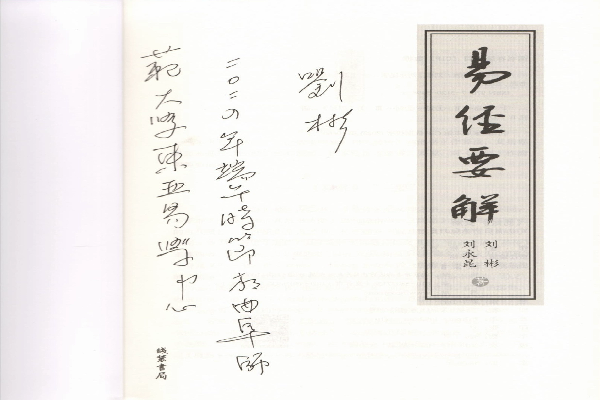 易经要解
刘彬
刘永昆
劉彬
二〇二四年端午時節於曲阜師
範大學東亞易學中心
綫裝書局